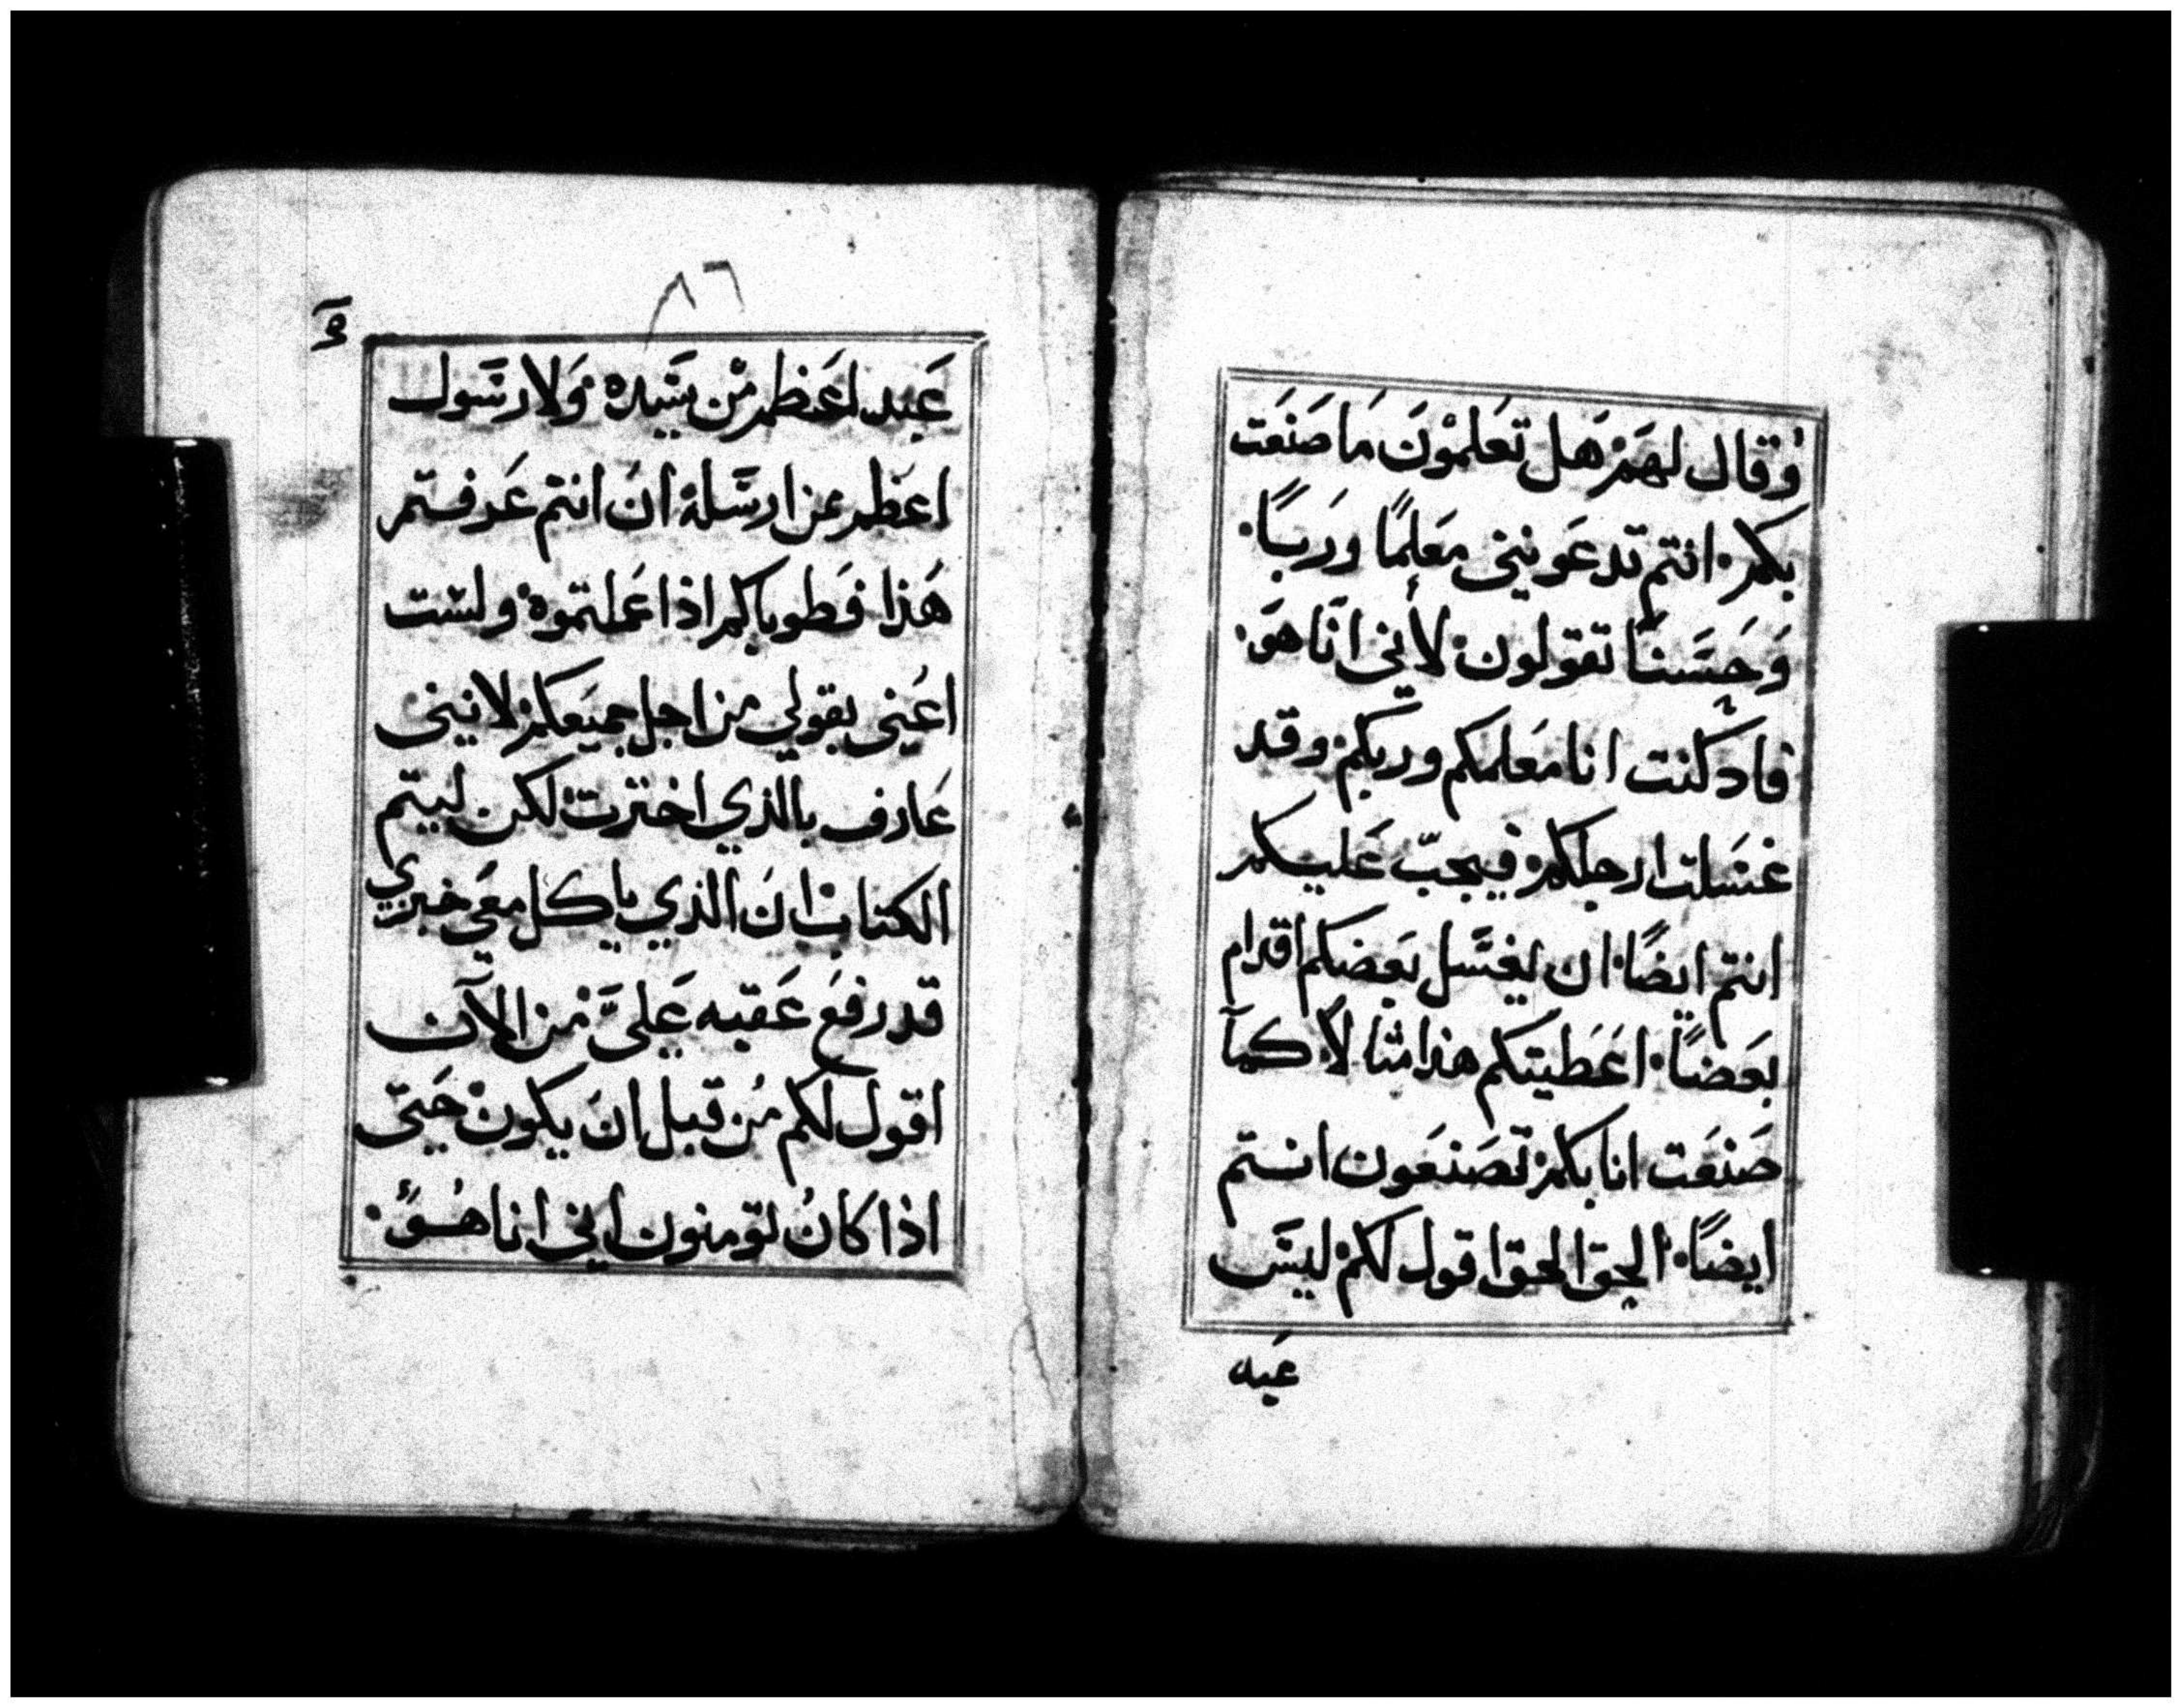 وقال لهم هل تعلمون ما صنعت
بكم انتم تدعونني معلمًا وربًا
وحسنًا تقولون لأني انا هو
فاد كنت انا معلمكم وربكم وقد
غسلت ارجلكم فيجب عليكم
انتم ايضًا ان يغسل بعضكم اقدام
بعضًا اعطيتكم هذا مثالًا كمآ
صنعت انا بكم تصنعون انتم
ايضًا الحق الحق اقول لكم ليس
عبد
٨٦
عبد اعظم من سيده ولا رسول
اعظم عن ارسله ان انتم عرفتم
هذا فطوباكم اذا عملتموه ولست
اعني بقولي من اجل جميعكم لانني
عارف بالذي اخترت لكن ليتم
الكتاب ان الذي ياكل معي خبزي
قد رفع عقبه عليَّ من الآن
اقول لكم من قبل ان يكون حتى
اذا كان تومنون اني انا هو